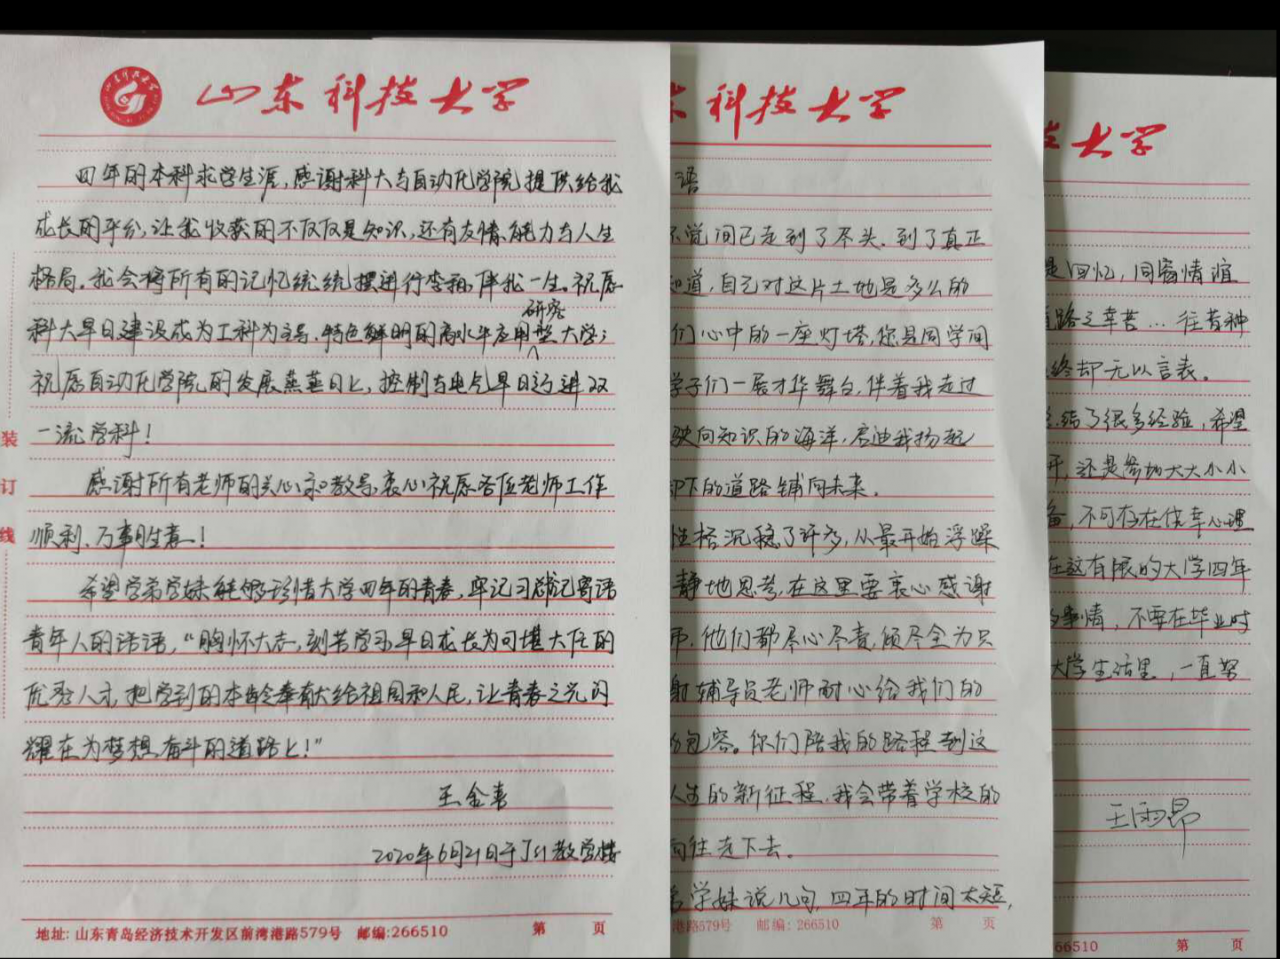 山东科技大学
四年的本科求学生涯,感谢科大与自动化学院提供给我
成长的平台,让我收获的不仅仅是知识,还有友情、能力与人生
格局。我会将所有的记忆统统摆进行李箱,伴我一生。祝愿
研究
科大早日建设成为工科为主导,特色鲜明的高水平应用型大学;
祝愿自动化学院的发展蒸蒸日上,控制与电气早日迈进双
一流学科!
感谢所有老师的关心和教导,衷心祝愿各位老师工作
顺利、万事胜意!
希望学弟学妹能够珍惜大学四年的青春,牢记习总书记寄语
青年人的话语,“胸怀大志,刻苦学习,早日成长为可堪大任的
优秀人才,把学到的本领奉献给祖国和人民,让青春之光闪
耀在为梦想奋斗的道路上!”
王金喜
2020年6月21日于J51教学楼
装
订
线
地址: 山东青岛经济技术开发区前湾港路579号 邮编:266510 第 页
科技大学
语
不觉间已走到了尽头,到了真正
知道,自己对这片土地是多么的
们心中的一座灯塔,您是同学间
学子们一展才华舞台,伴着我走过
驶向知识的海洋,启迪我扬起
脚下的道路铺向未来。
性格沉稳了许多,从最开始浮躁
静地思考,在这里要衷心感谢
师,他们都尽心尽责,倾尽全力只
谢辅导员老师耐心给我们的
包容。你们陪我的路程到这
人生的新征程,我会带着学校的
向往走下去。
学妹说几句,四年的时间太短,
港路579号 邮编: 266510 第 页
大学
是回忆,同窗情谊
道路之辛苦…往昔种
终却无以言表。
总结了很多经验,希望
还是参加大大小小
备,不可存在侥幸心理
在这有限的大学四年
事情,不要在毕业时
大学生活里,一直努
王雨昂
66510 第 页